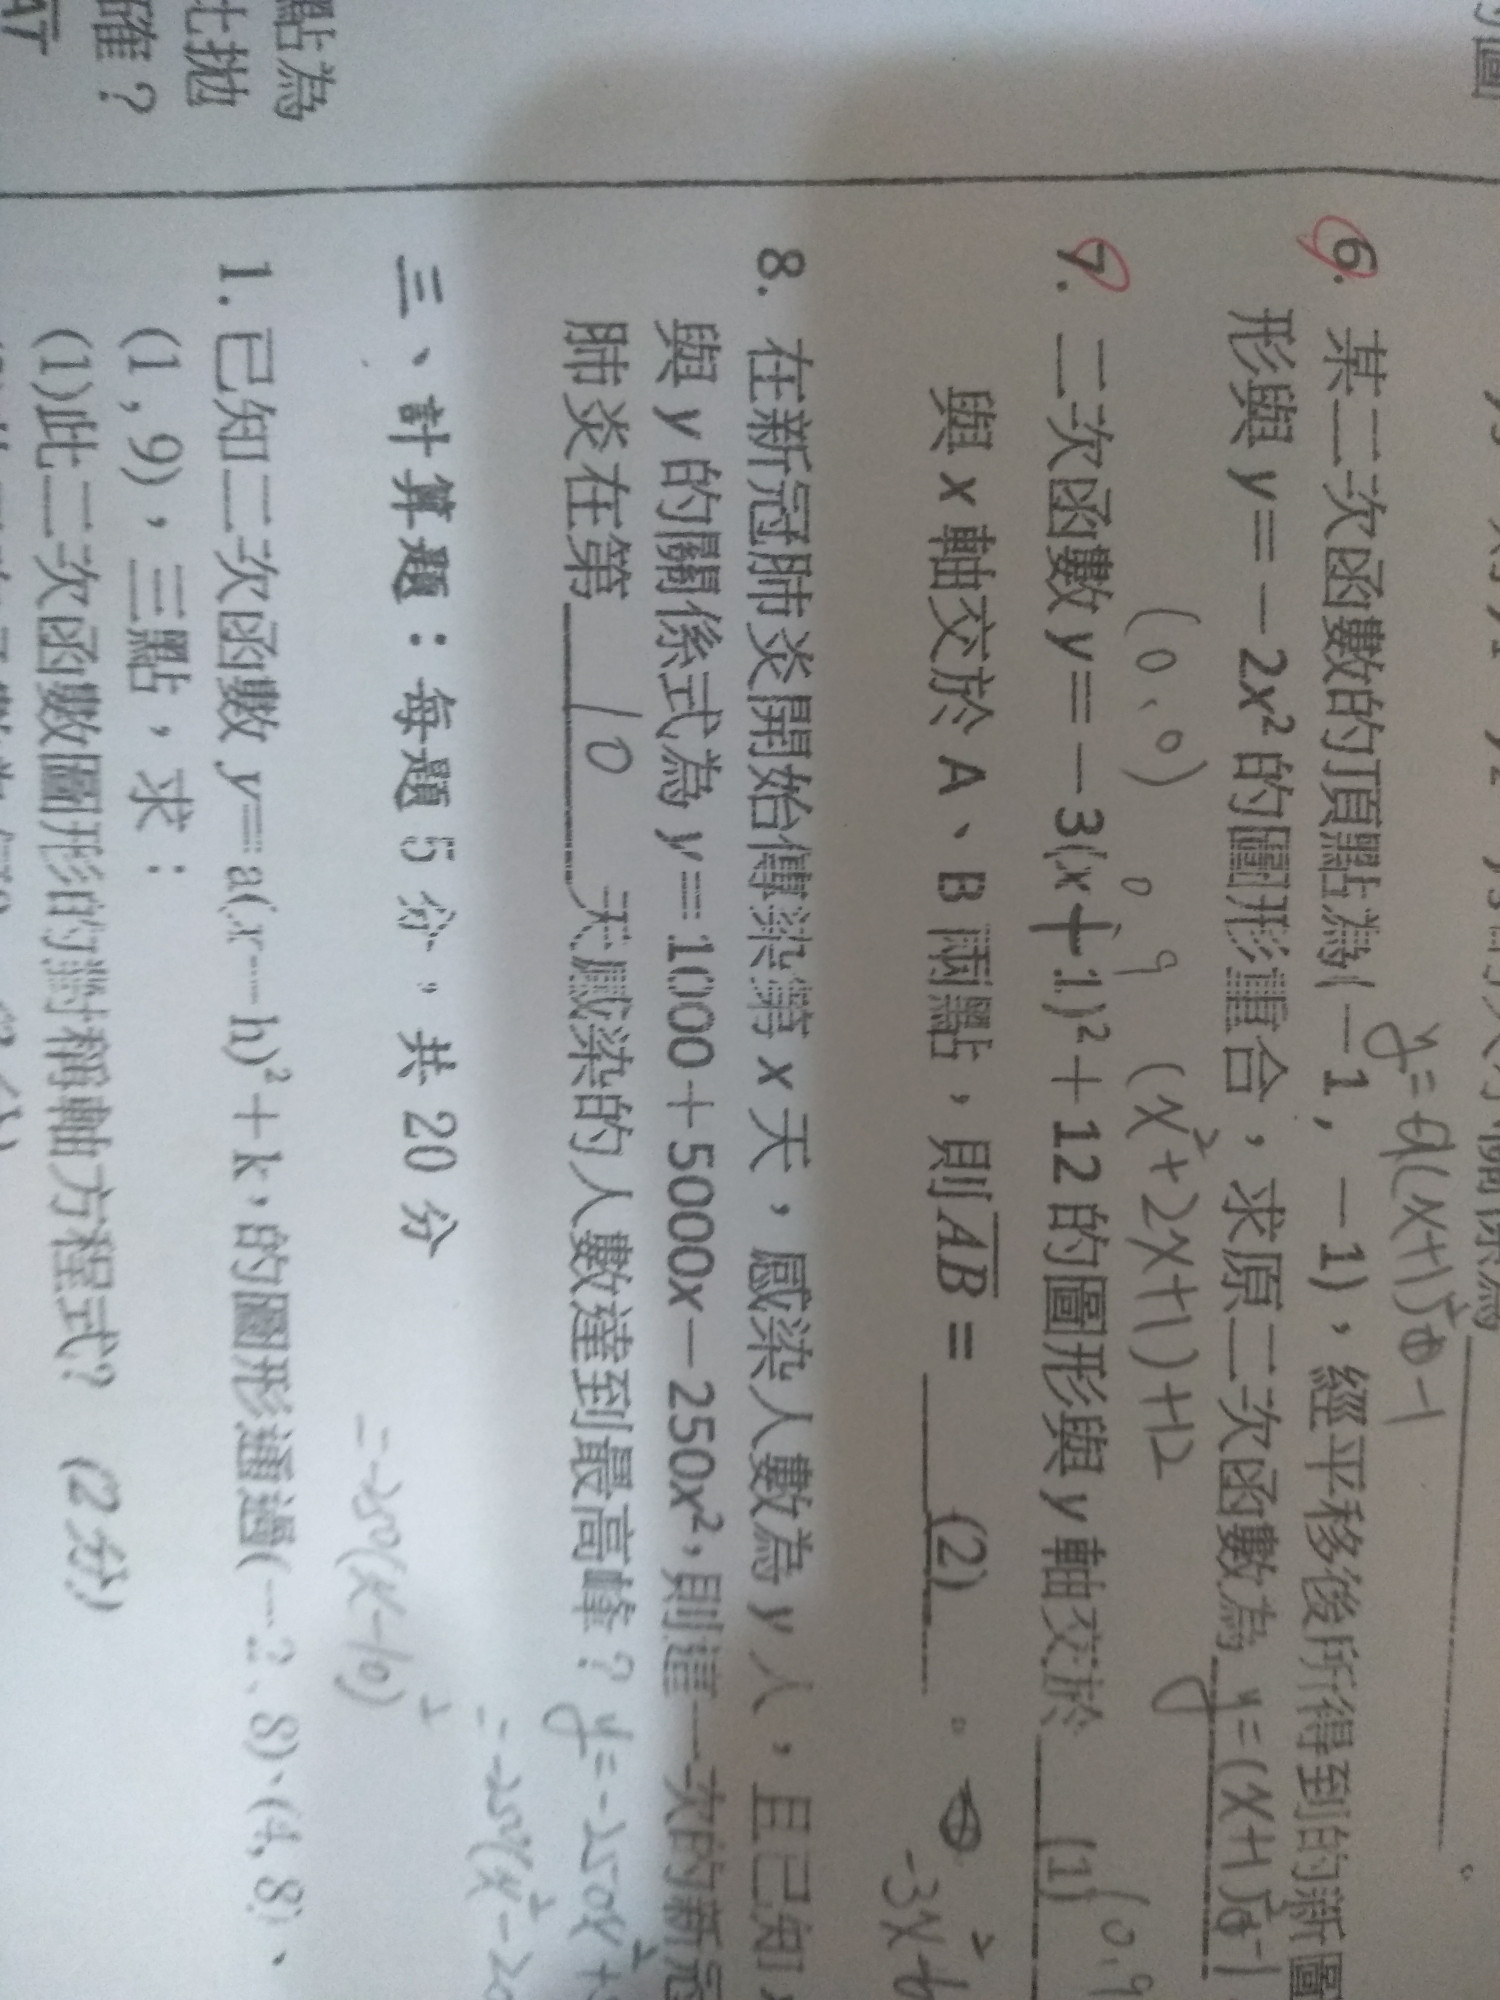 6. 某二次函數的頂點為(－1, －1)，經平移後所得到的新圖
形與 y＝－2x²的圖形重合，求原二次函數為
y=(x+1)²-1
7. 二次函數 y＝－3(x＋1)²＋12 的圖形與 y 軸交於 (1)
與 x 軸交於 A、B 兩點，則AB = (2) 。
(0、0)
0 9
(x²+2x+1)+12
(0,9
-3x²
8. 在新冠肺炎開始傳染第 x 天，感染人數為 y 人，且已知 x
與 y 的關係式為 y＝1000＋5000x－250x²，則這一次的新冠
肺炎在第 10 天感染的人數達到最高峰？
y=-250x²+
=-250(x²-20
=-250(x-10)²
三、計算題：每題 5 分，共 20 分
1. 已知二次函數 y＝a(x－h)²＋k，的圖形通過(－2、8)、(4, 8)、
(1 , 9)，三點，求：
(1)此二次函數圖形的對稱軸方程式? (2 分)
點為
比拋
確？
AT